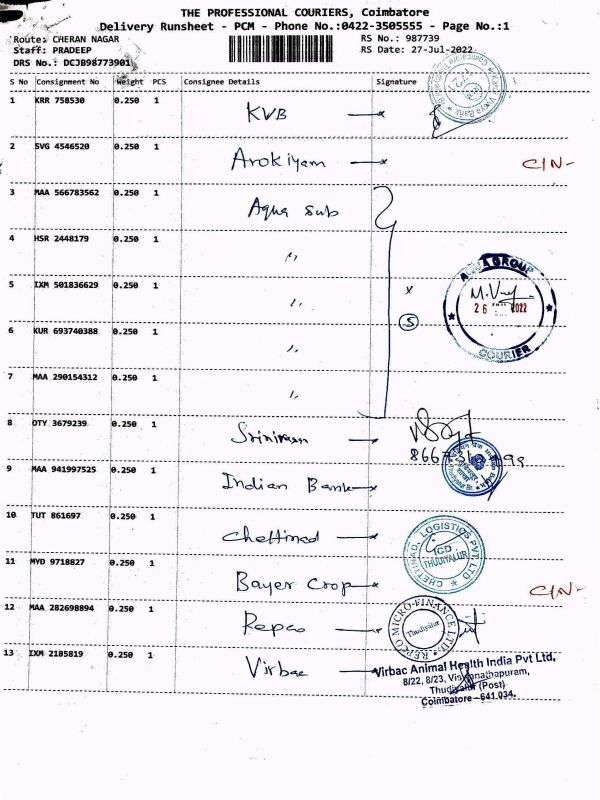 THE PROFESSIONAL COURIERS, Coimbatore
Delivery Runsheet - PCM - Phone No.:0422-3505555 - Page No.:1
Route: CHERAN NAGAR
RS No.: 987739
Staff: PRADEEP
RS Date: 27-Jul-2022
DRS No.: DCJB98773901
S No Consignment No Weight PCS Consignee Details Signature
1 KRR 758530 0.250 1 KVB
2 SVG 4546520 0.250 1 Arokiyam C/N-
3 MAA 566783562 0.250 1 Aqua Sub
4 HSR 2448179 0.250 1 〃
5 IXM 501836629 0.250 1 〃
6 KUR 693740388 0.250 1 〃 5
7 MAA 290154312 0.250 1 〃
GROUP
26 2022
COURIER
8 OTY 3679239 0.250 1 Srinivasan
9 MAA 941997525 0.250 1 Indian Bank
10 TUT 861697 0.250 1 Chettinad
CHETTINAD LOGISTICS PVT. LTD
ICD
THUDIYALUR
11 MYD 9718827 0.250 1 Bayer Crop C/N-
12 MAA 282698894 0.250 1 Repco
REPCO MICRO-FINANCE LTD.
Thudiyalur
13 IXM 2105819 0.250 1 Virbac
Virbac Animal Health India Pvt Ltd,
8/22, 8/23, Viswanathapuram,
Thudiyalur (Post)
Coimbatore - 641 034.